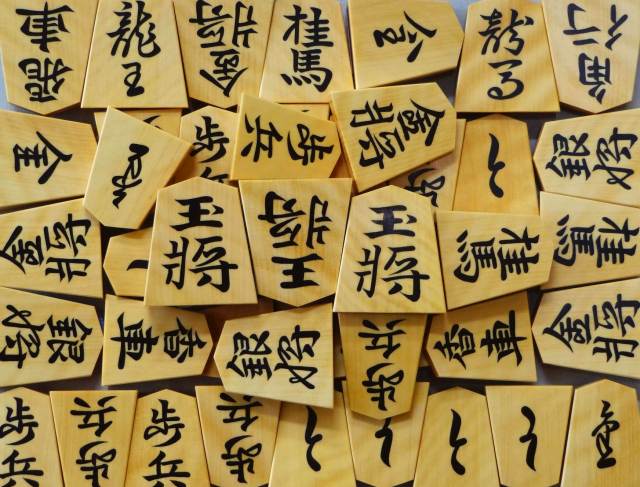 飛車
龍王
金将
桂馬
龍馬
角行
歩
歩兵
金将
歩
と
銀将
金将
玉将
王将
玉将
桂馬
桂馬
銀将
香車
銀将
歩兵
香車
金将
歩兵
歩兵
歩兵
歩兵
と
と
と
と